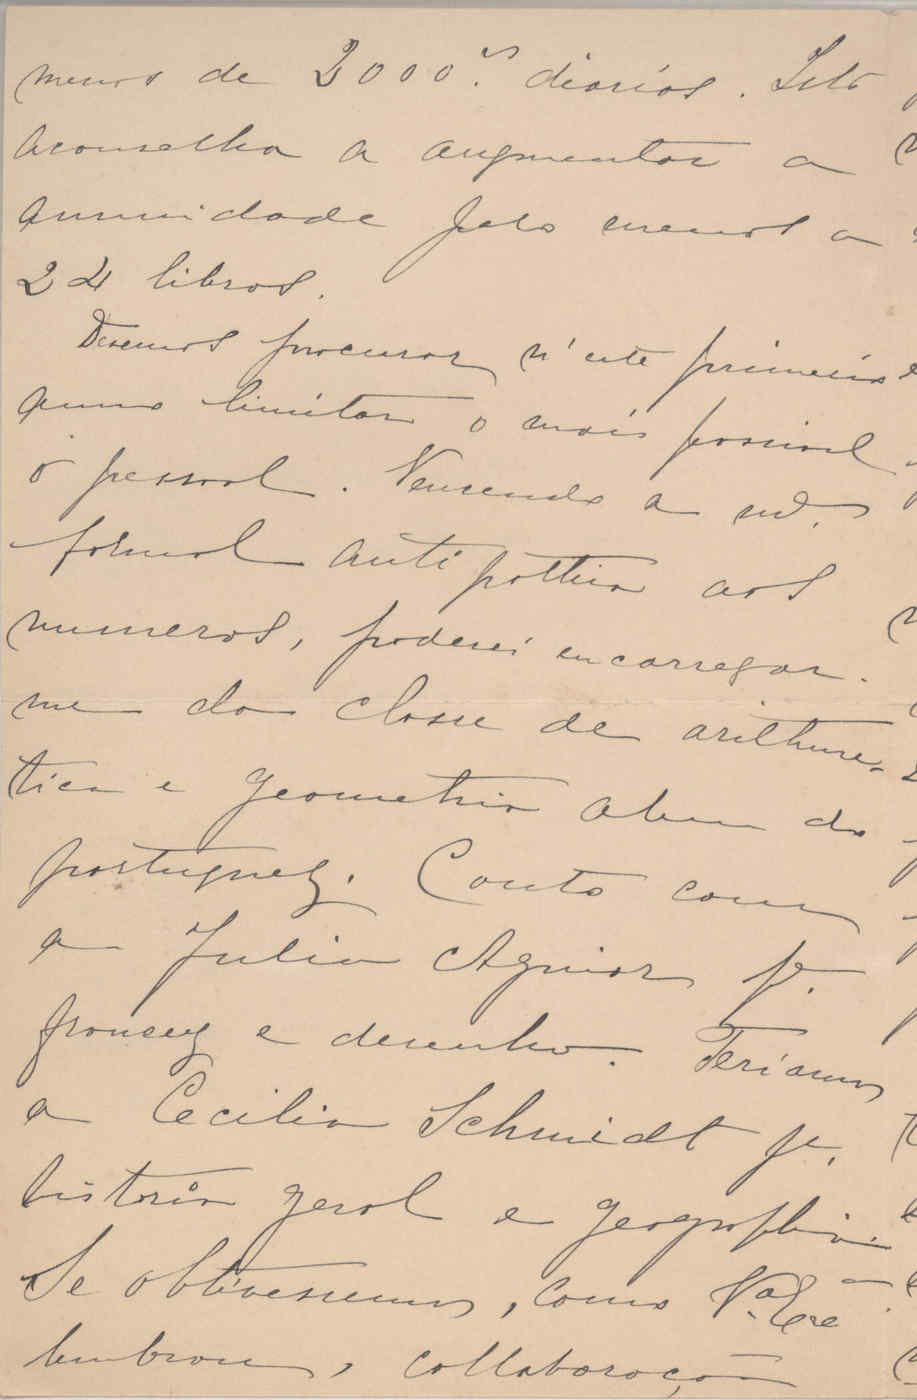 menos de 2000rs. diarios. Isto
aconselha a augmentar a
annuidade pelo menos a
24 libras.
Devemos procurar n'este primeiro
anno limitar o mais possivel
o pessoal. Vencendo a m.ª
formal antipathia aos
numeros, poderei encarregar-
me da classe de arithme-
tica e geometria alem do
portuguez. Conto com
a Julia Aguiar p.ª
francez e desenho. Teriamos
a Cecilia Schmidt p.ª
historia geral e geographia.
Se obtivessemos, como V.ª Ex.ª
lembrou, collaboração